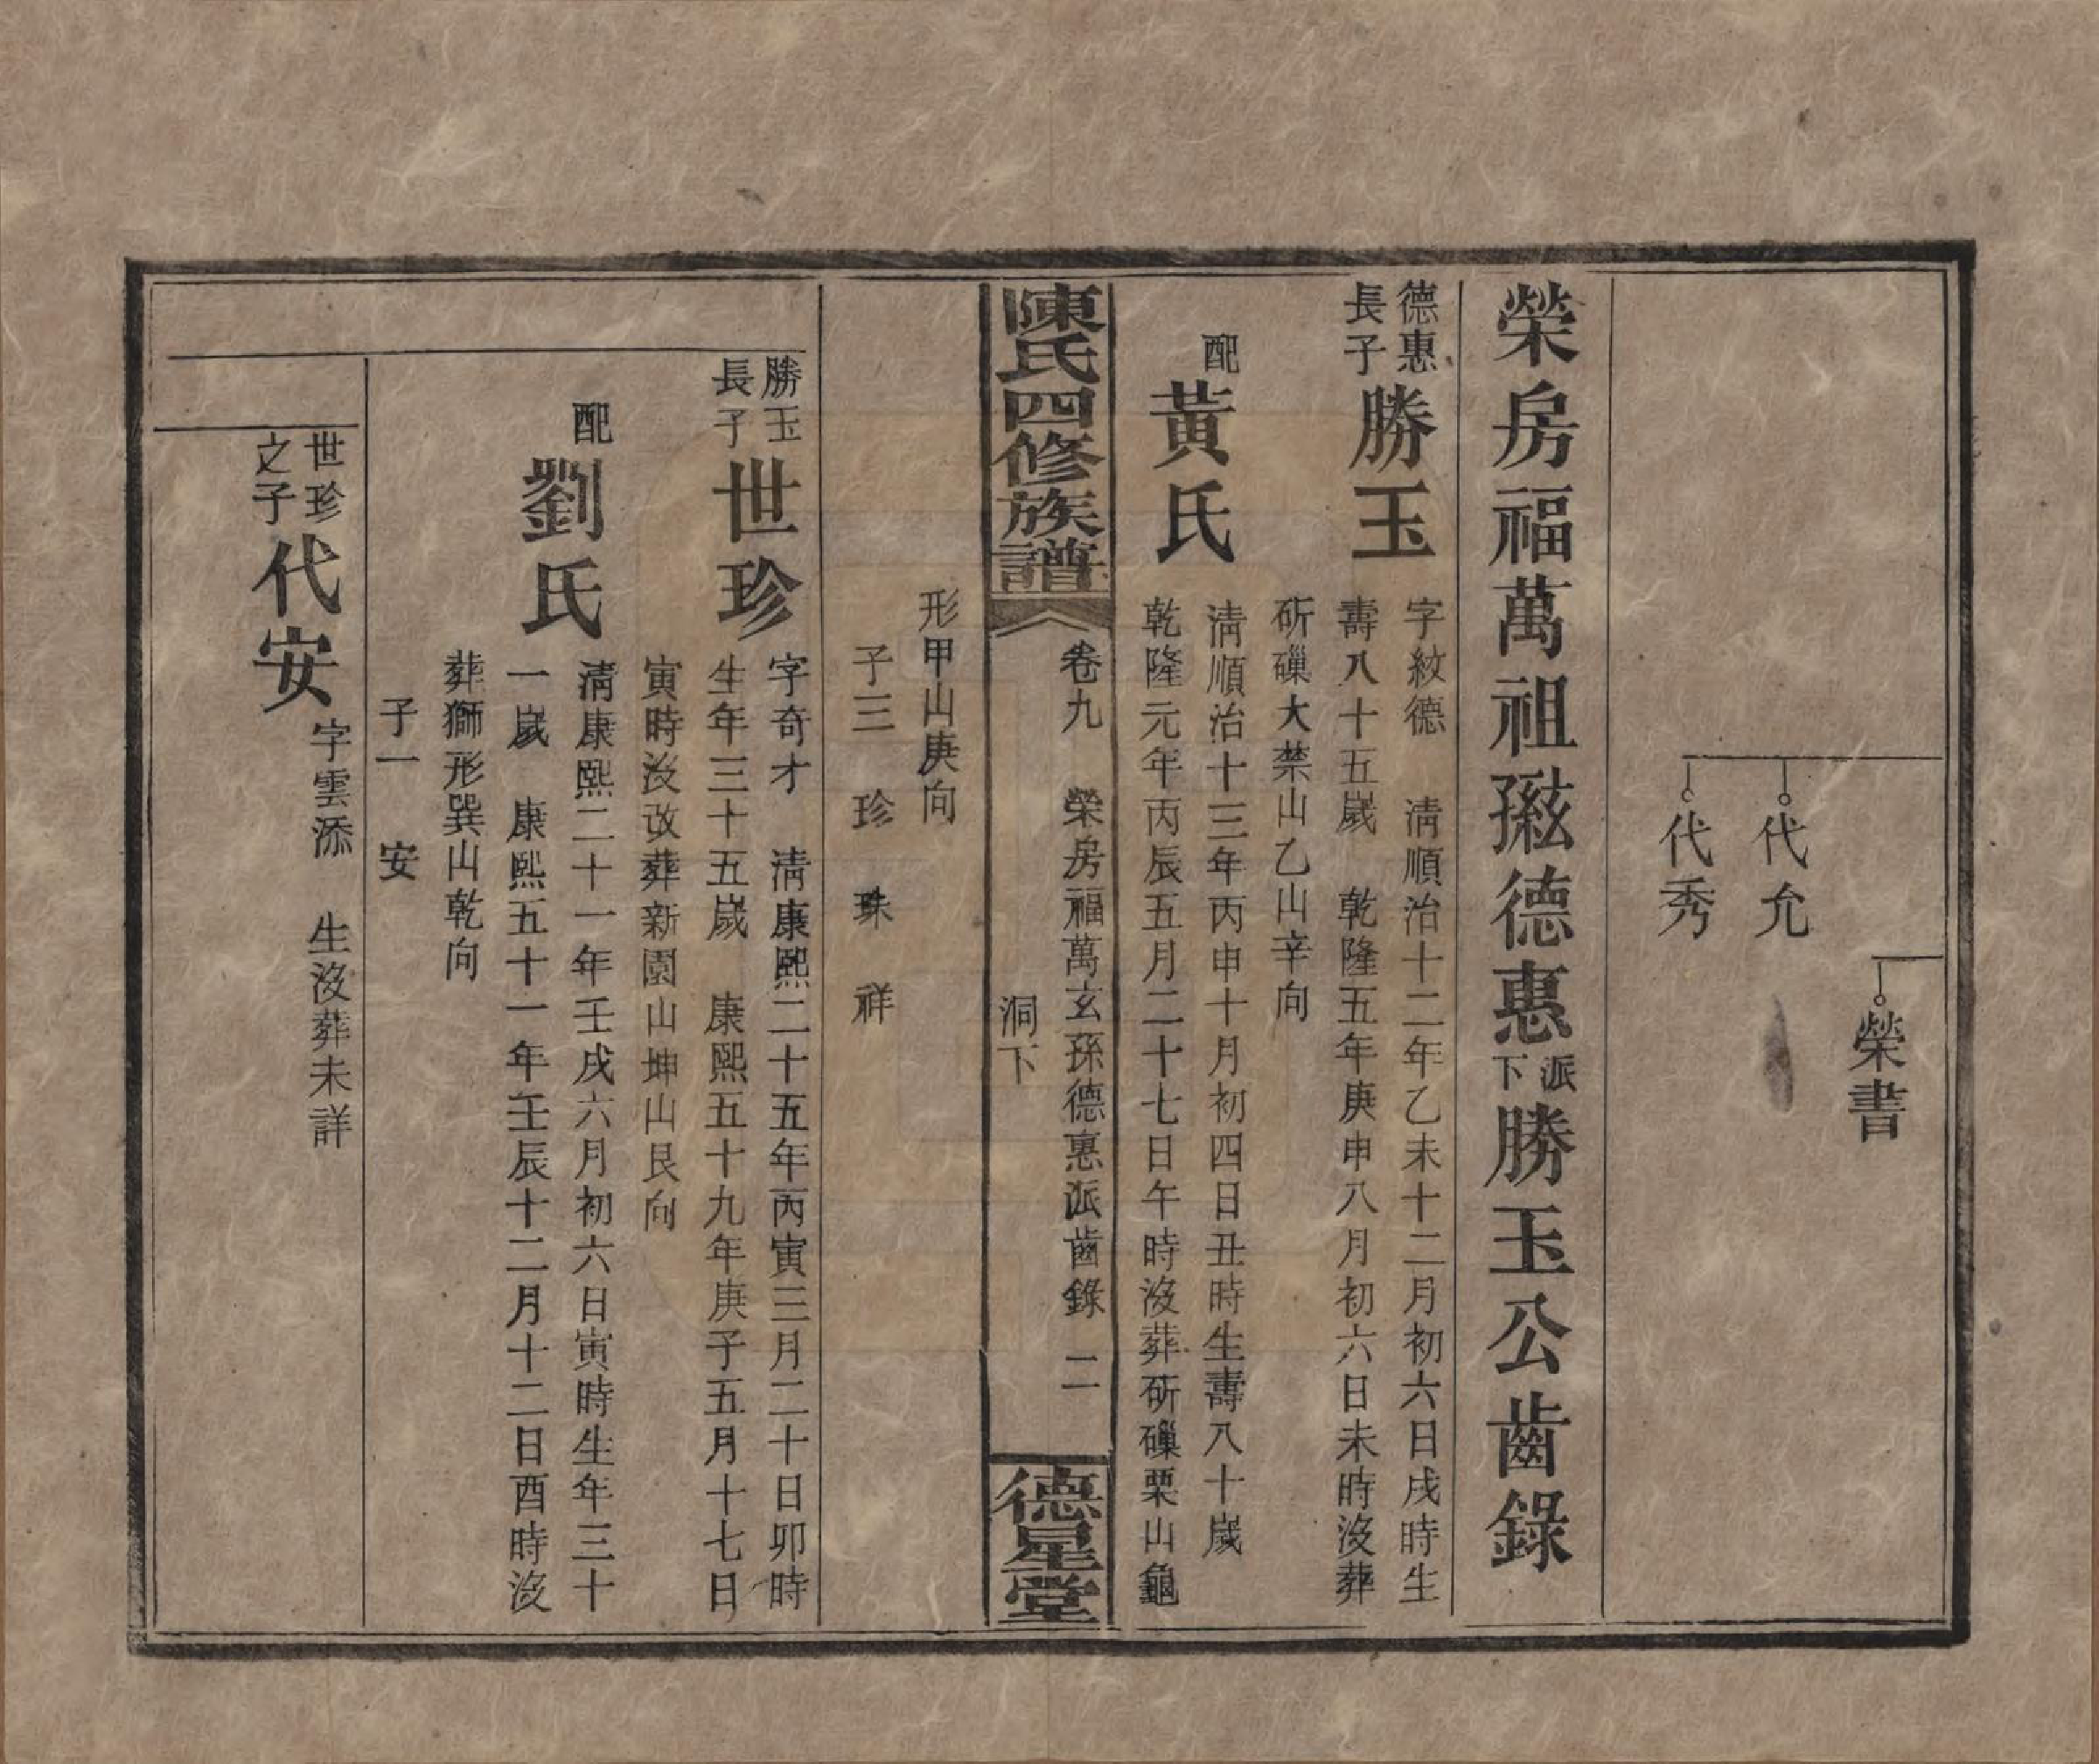 榮書
代允
代秀
榮房福萬祖𤣥孫德惠派下勝玉公齒錄
德惠
長子
勝玉
字紋德 清順治十二年乙未十二月初六日戌時生
壽八十五嵗 乾隆五年庚申八月初六日未時沒葬
斫磥大禁山乙山辛向
配
黃氏
清順治十三年丙申十月初四日丑時生壽八十嵗
乾隆元年丙辰五月二十七日午時沒葬斫磥栗山龜
陳氏四修族譜
卷九 榮房福萬玄孫德惠派齒錄 二
洞下
德星堂
形甲山庚向
子三 珍 珠 祥
勝玉
長子
世珍
字奇才 清康熙二十五年丙寅三月二十日卯時
生年三十五嵗 康熙五十九年庚子五月十七日
寅時沒改葬新園山坤山艮向
配
劉氏
清康熙二十一年壬戌六月初六日寅時生年三十
一嵗 康熙五十一年壬辰十二月十二日酉時沒
葬獅形巽山乾向
子一 安
世珍
之子
代安
字雲添 生沒葬未詳